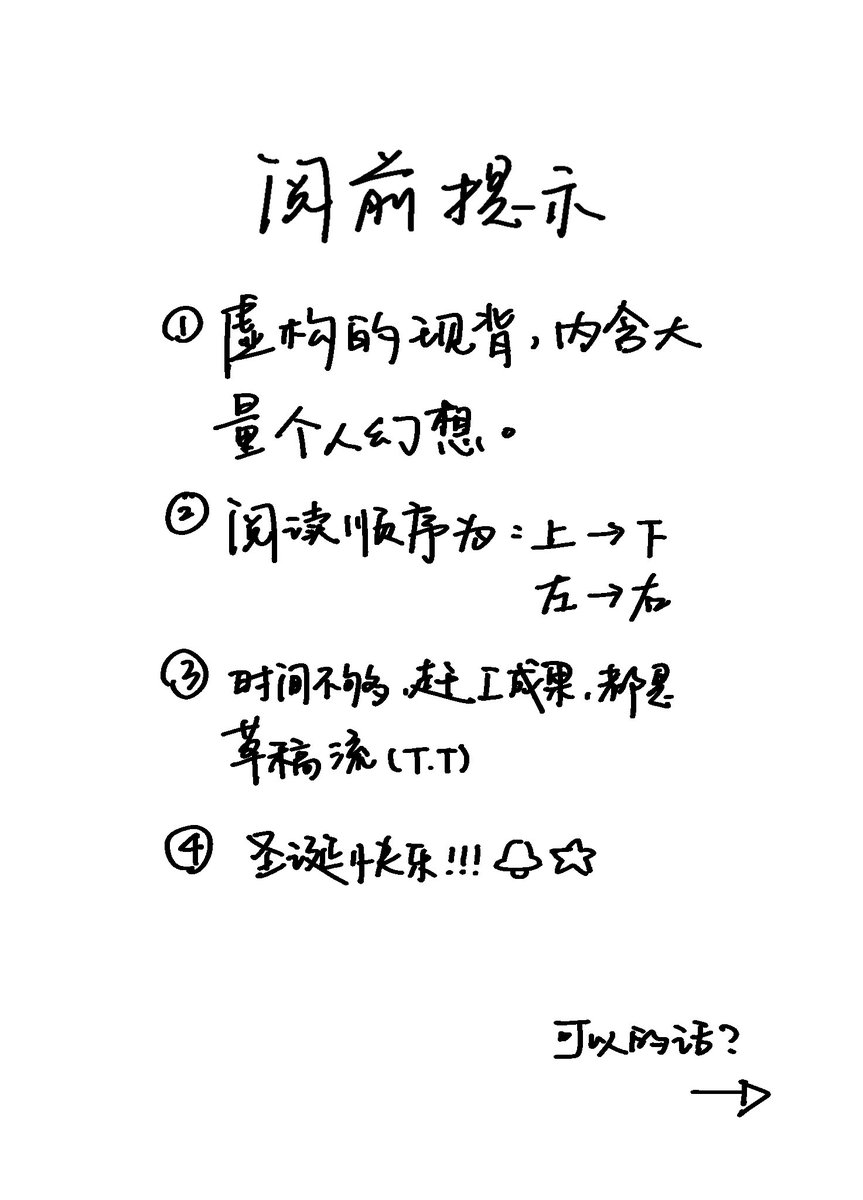 阅前提示
① 虚构的现背,内含大
量个人幻想。
② 阅读顺序为:上→下
左→右
③ 时间不够,赶工成果,都是
草稿流(T.T)
④ 圣诞快乐!!!🔔☆
可以的话?
→